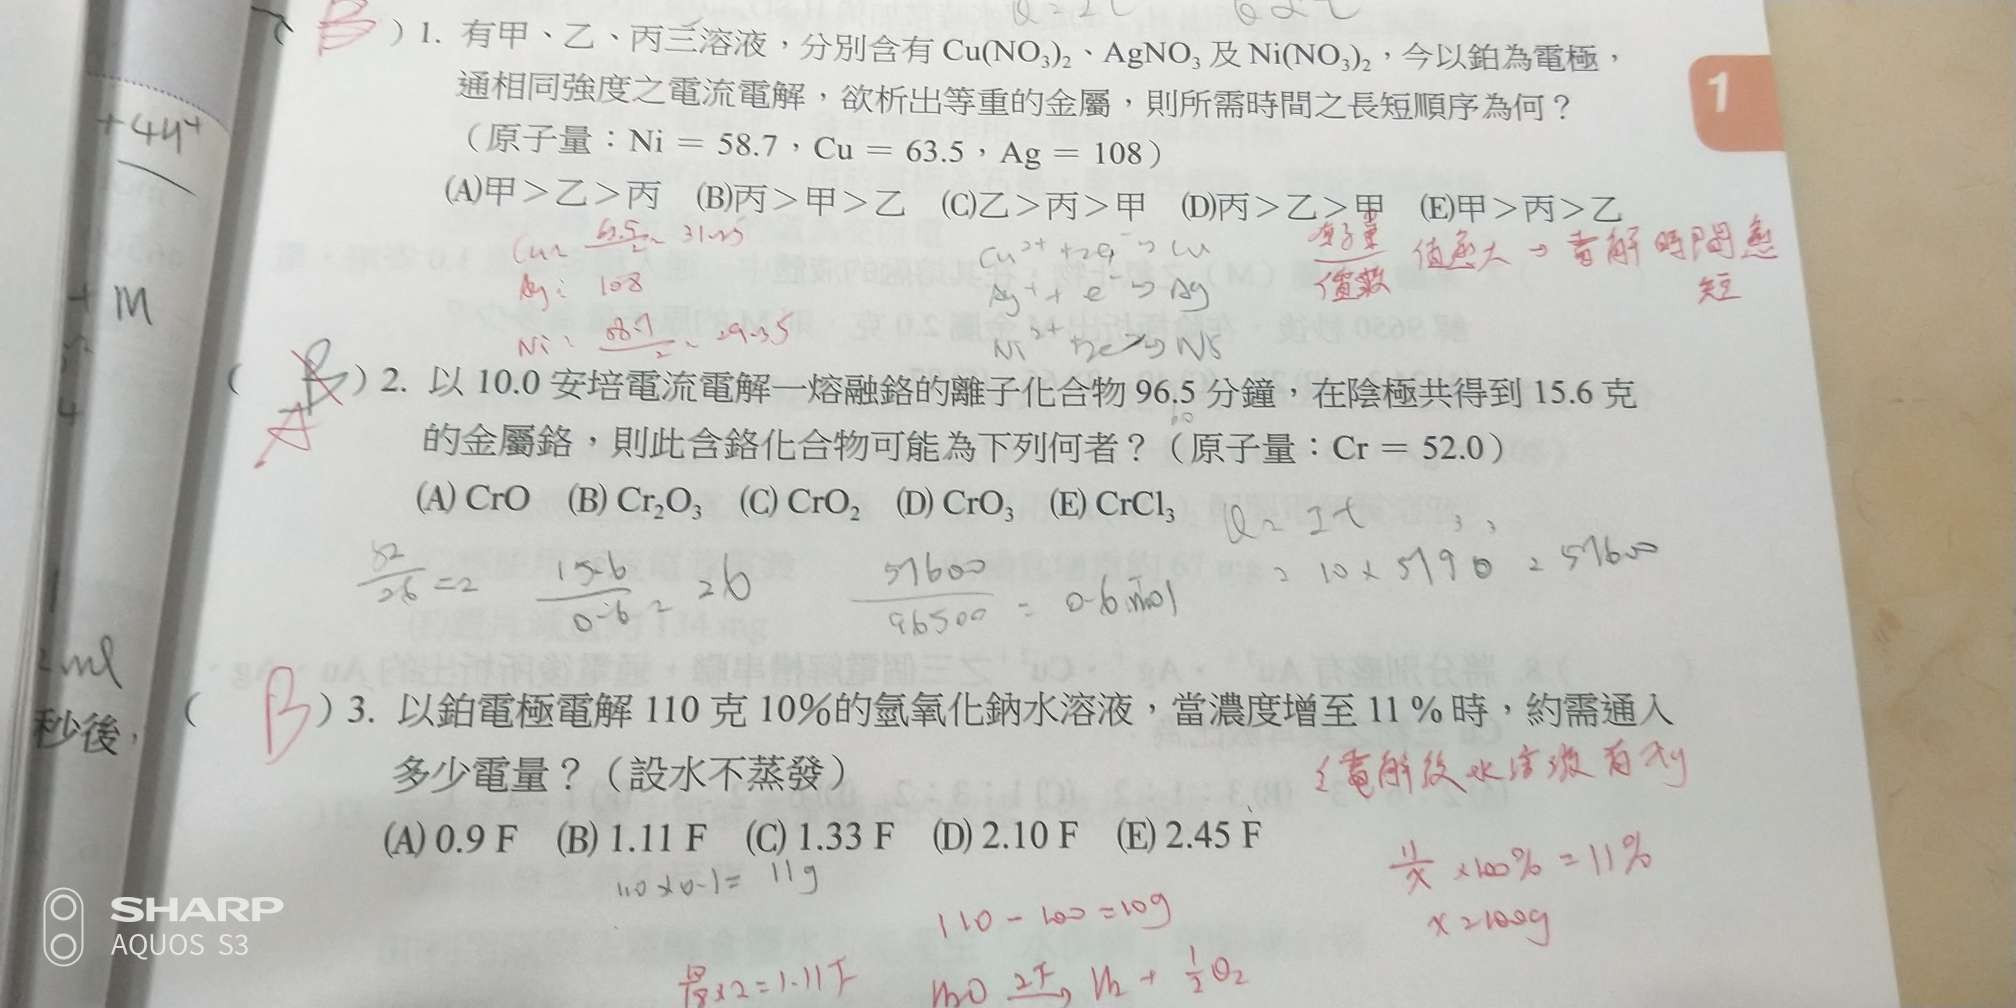 Q = It Q ∝ t
B ) 1. 有甲、乙、丙三溶液，分別含有 Cu(NO₃)₂、AgNO₃ 及 Ni(NO₃)₂，今以鉑為電極，
通相同強度之電流電解，欲析出等重的金屬，則所需時間之長短順序為何？
（原子量：Ni = 58.7，Cu = 63.5，Ag = 108）
(A)甲＞乙＞丙 (B)丙＞甲＞乙 (C)乙＞丙＞甲 (D)丙＞乙＞甲 (E)甲＞丙＞乙
Cu²⁺ + 2e⁻ → Cu
Ag⁺ + e⁻ → Ag
Ag: 108
Ni²⁺ + 2e → Ni
原子量/價數 值愈大 → 電解時間愈短
( A ) 2. 以 10.0 安培電流電解一熔融鉻的離子化合物 96.5 分鐘，在陰極共得到 15.6 克
的金屬鉻，則此含鉻化合物可能為下列何者？（原子量：Cr = 52.0）
(A) CrO (B) Cr₂O₃ (C) CrO₂ (D) CrO₃ (E) CrCl₃
Q = It
= 10 × 5790 = 57600
52/26 = 2 15.6/0.6 = 26 57600/96500 = 0.6 mol
( B ) 3. 以鉑電極電解 110 克 10%的氫氧化鈉水溶液，當濃度增至 11 % 時，約需通入
多少電量？（設水不蒸發）
電解後水溶液有 xg
(A) 0.9 F (B) 1.11 F (C) 1.33 F (D) 2.10 F (E) 2.45 F
110 × 0.1 = 11g
11/x × 100% = 11%
x = 100g
110 - 100 = 10g
10/18 × 2 = 1.11F H₂O 2F→ H₂ + 1/2 O₂
+4H⁺
+ M
4
ml
秒後，
1
SHARP
AQUOS S3